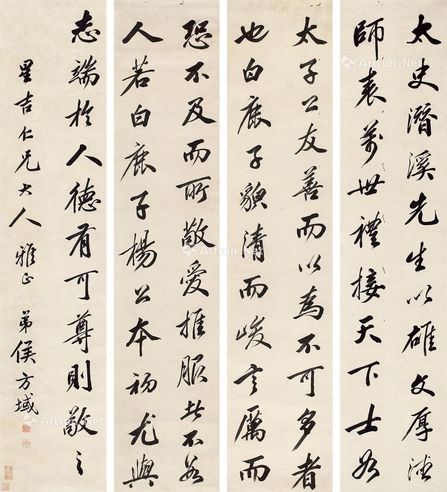 太史潛溪先生以雄文厚德
師表萬世禮接天下士如
太子公友善而以為不可多者
也白鹿子貌清而峻言厲而
恐不及而所敬愛推服此不如
人若白鹿子楊公本初尤與
志端於人德有可尊則敬之
星吉仁兄大人雅正 弟侯方域